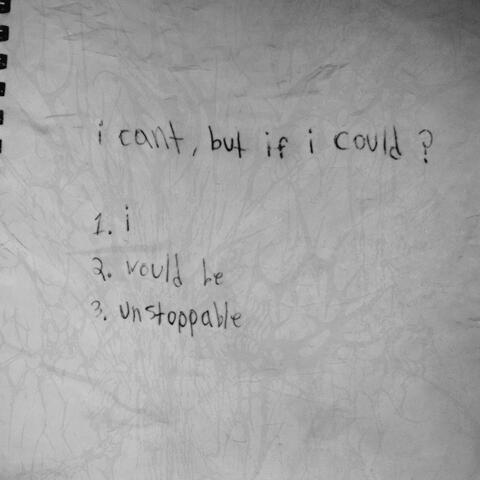 i cant, but if i could ?
1. i
2. would be
3. unstoppable